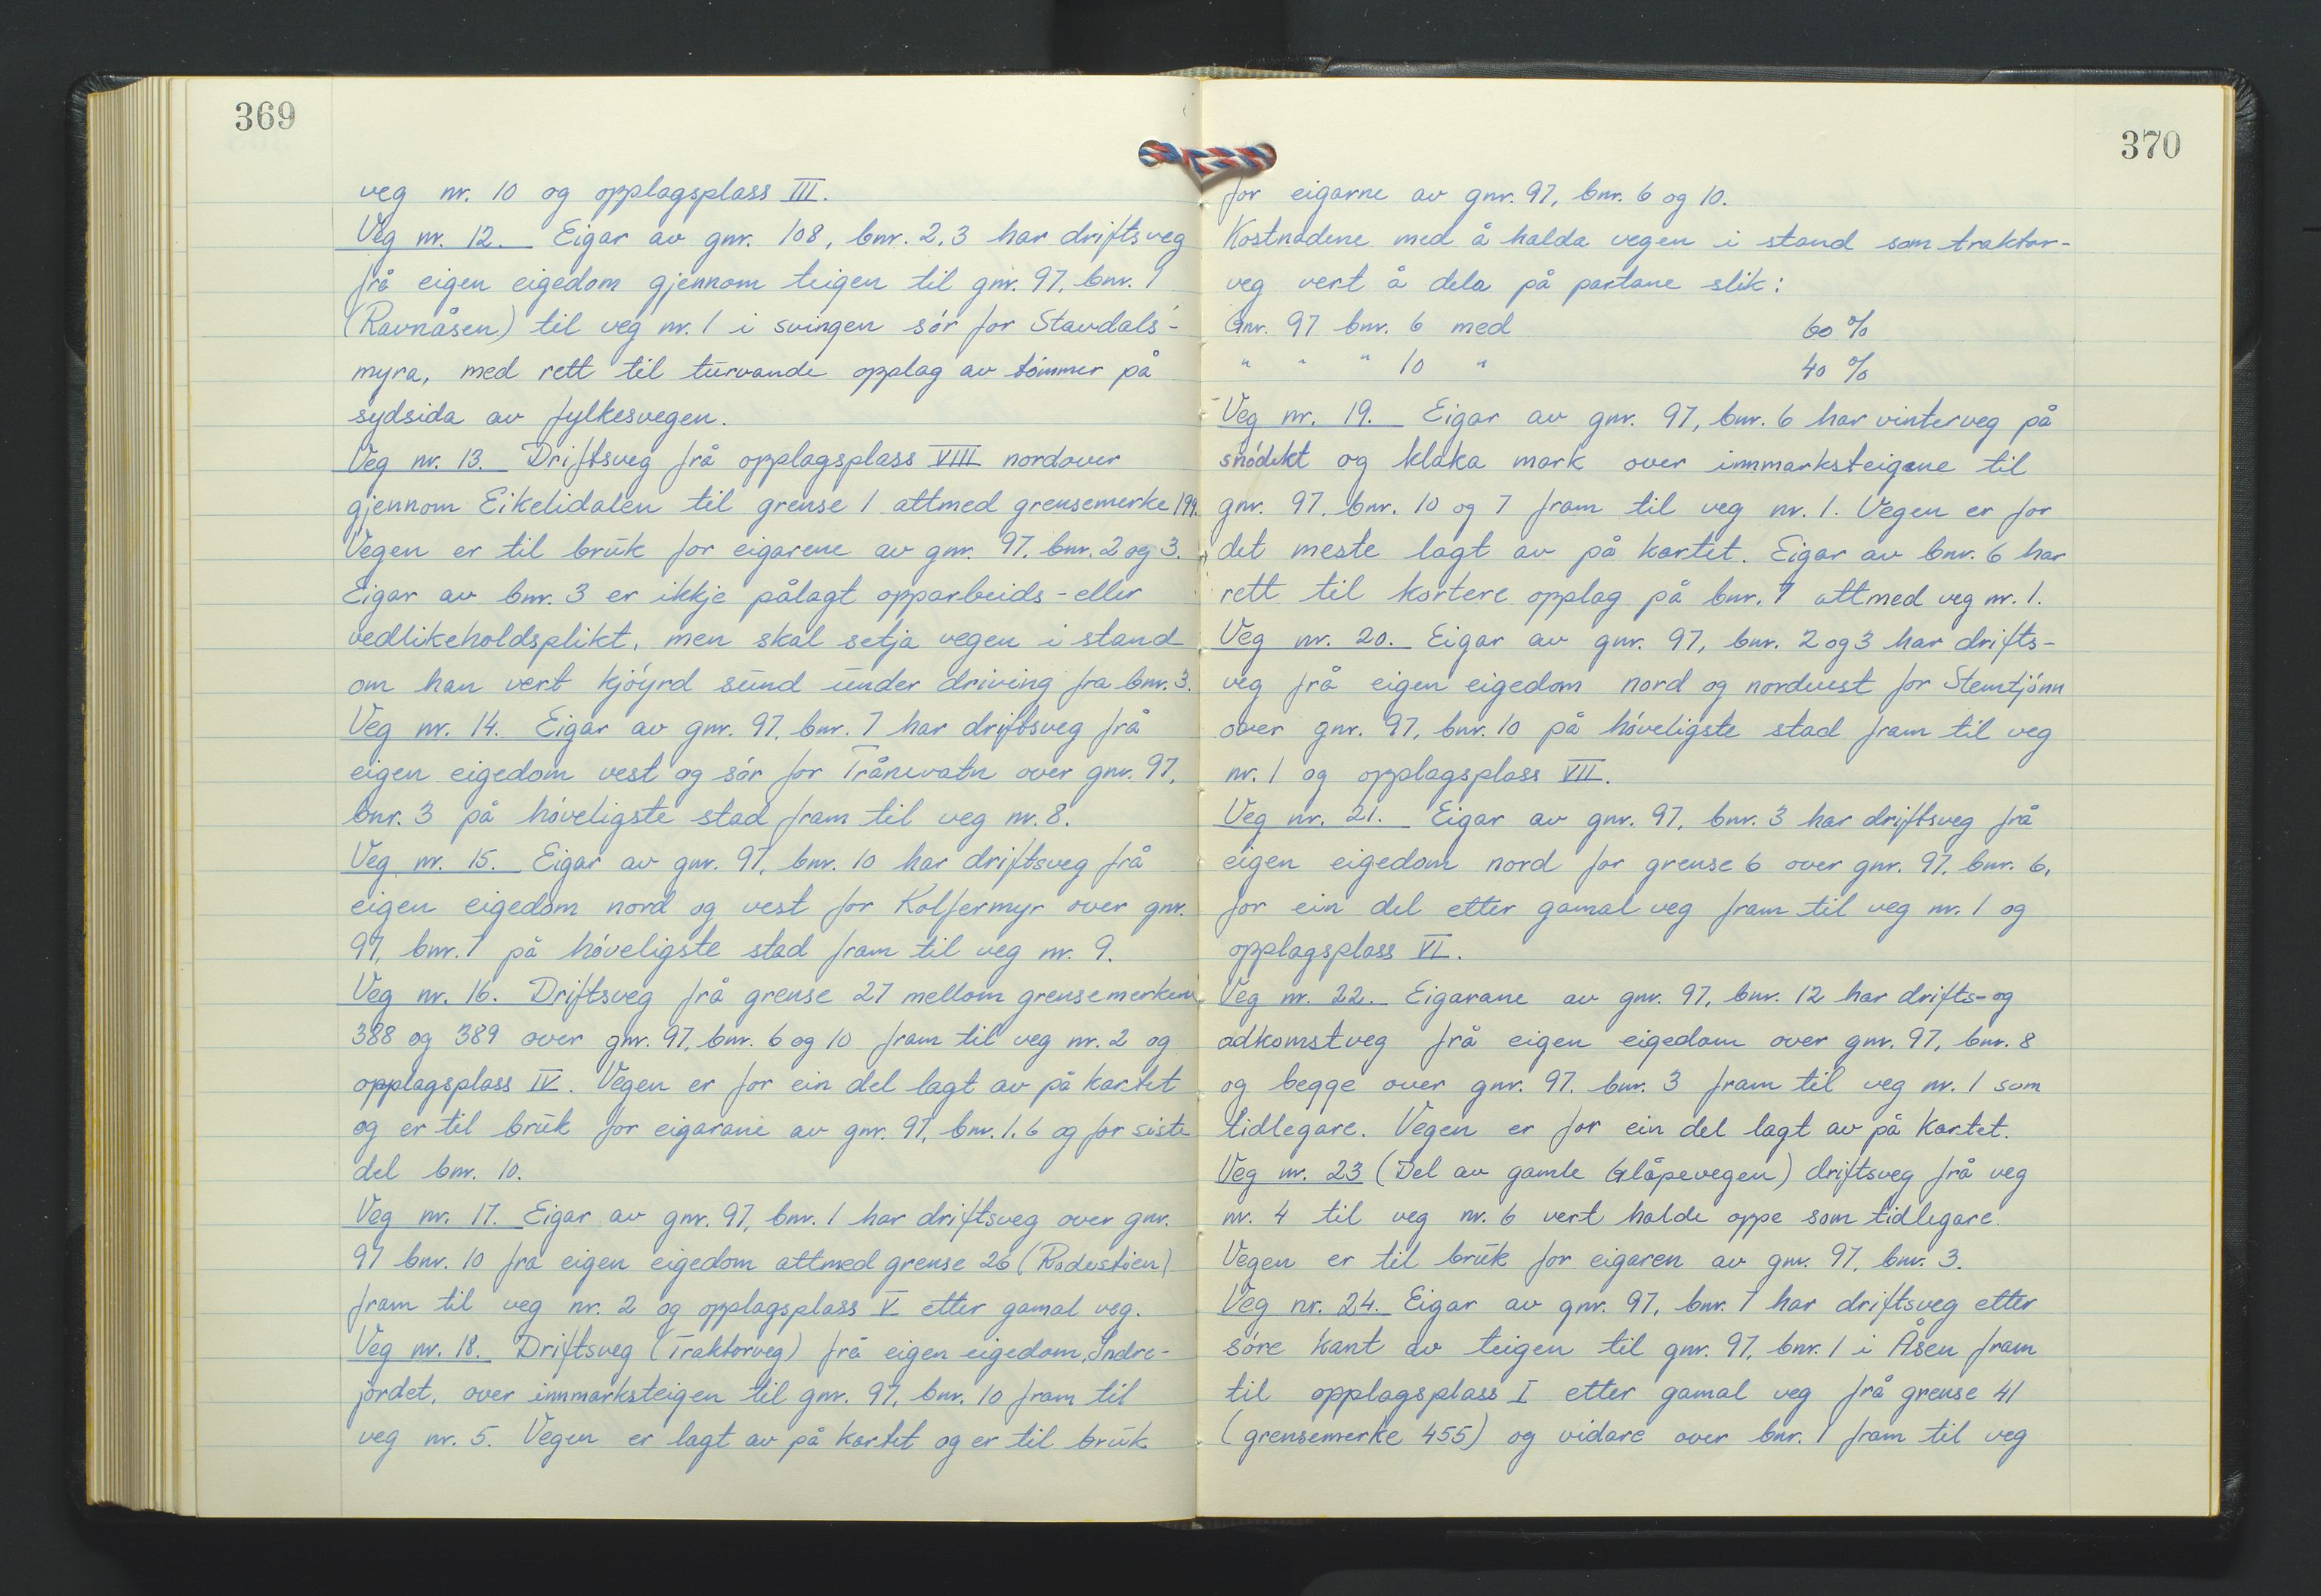 369
veg nr. 10 og opplagsplass III.
Veg nr. 12. Eigar av gnr. 108, bnr. 2,3 har driftsveg
frå eigen eigedom gjennom teigen til gnr. 97, bnr. 1
(Ravnåsen) til veg nr. 1 i svingen sør for Stavdals-
myra, med rett til turvande opplag av tømmer på
sydsida av fylkesvegen.
Veg nr. 13. Driftsveg frå opplagsplass VIII nordover
gjennom Eikelidalen til grense 1 attmed grensemerke 199.
Vegen er til bruk for eigarene av gnr. 97, bnr. 2 og 3.
Eigar av bnr. 3 er ikkje pålagt opparbeids- eller
vedlikeholdsplikt, men skal setja vegen i stand
om han vert kjøyrd sund under driving fra bnr. 3.
Veg nr. 14. Eigar av gnr. 97, bnr. 7 har driftsveg frå
eigen eigedom vest og sør for Trånevatn over gnr. 97,
bnr. 3 på høveligste stad fram til veg nr. 8.
Veg nr. 15. Eigar av gnr. 97, bnr. 10 har driftsveg frå
eigen eigedom nord og vest for Kolfermyr over gnr.
97, bnr. 7 på høveligste stad fram til veg nr. 9.
Veg nr. 16. Driftsveg frå grense 27 mellom grensemerken
388 og 389 over gnr. 97, bnr. 6 og 10 fram til veg nr. 2 og
opplagsplass IV. Vegen er for ein del lagt av på kartet
og er til bruk for eigarane av gnr. 97, bnr. 1,6 og for siste
del bnr. 10.
Veg nr. 17. Eigar av gnr. 97, bnr. 1 har driftsveg over gnr.
97 bnr. 10 fra eigen eigedom attmed grense 26 (Radestøen)
fram til veg nr. 2 og opplagsplass V etter gamal veg.
Veg nr. 18. Driftsveg (Traktorveg) frå eigen eigedom, Indre-
jordet, over innmarksteigen til gnr. 97, bnr. 10 fram til
veg nr. 5. Vegen er lagt av på kartet og er til bruk
370
for eigarne av gnr. 97, bnr. 6 og 10.
Kostnadene med å halda vegen i stand som traktor-
veg vert å dela på partane slik:
Gnr. 97 bnr. 6 med 60 %
" " " 10 " 40 %
Veg nr. 19. Eigar av gnr. 97, bnr. 6 har vinterveg på
snødekt og klaka mark over innmarksteigane til
gnr. 97, bnr. 10 og 7 fram til veg nr. 1. Vegen er for
det meste lagt av på kartet. Eigar av bnr. 6 har
rett til kortere opplag på bnr. 7 attmed veg nr. 1.
Veg nr. 20. Eigar av gnr. 97, bnr. 2 og 3 har drifts-
veg frå eigen eigedom nord og nordvest for Stemtjønn
over gnr. 97, bnr. 10 på høveligste stad fram til veg
nr. 1 og opplagsplass VII.
Veg nr. 21. Eigar av gnr. 97, bnr. 3 har driftsveg frå
eigen eigedom nord for grense 6 over gnr. 97, bnr. 6,
for ein del etter gamal veg fram til veg nr. 1 og
opplagsplass VI.
Veg nr. 22. Eigarane av gnr. 97, bnr. 12 har drifts- og
adkomstveg frå eigen eigedom over gnr. 97, bnr. 8
og begge over gnr. 97, bnr. 3 fram til veg nr. 1 som
tidlegare. Vegen er for ein del lagt av på kartet.
Veg nr. 23 (Del av gamle Glåpevegen) driftsveg frå veg
nr. 4 til veg nr. 6 vert halde oppe som tidlegare.
Vegen er til bruk for eigaren av gnr. 97, bnr. 3.
Veg nr. 24. Eigar av gnr. 97, bnr. 7 har driftsveg etter
søre kant av teigen til gnr. 97, bnr. 1 i Åsen fram
til opplagsplass I etter gamal veg frå grense 41
(grensemerke 455) og vidare over bnr. 1 fram til veg